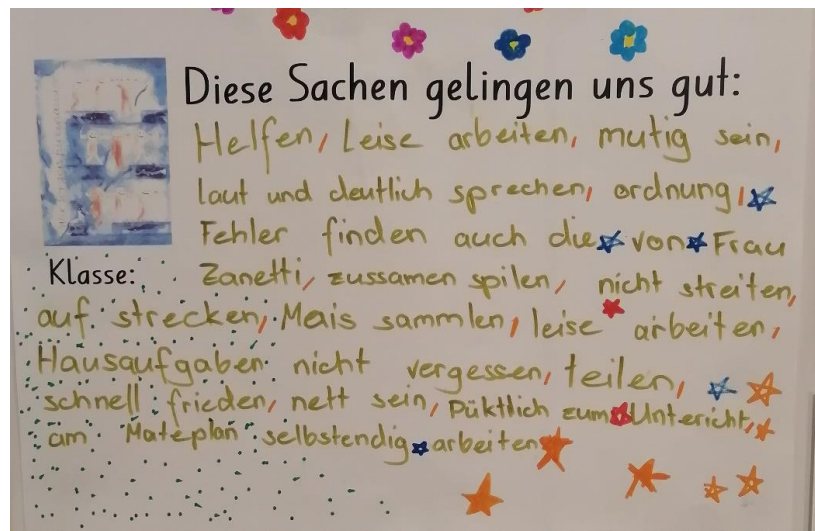 Diese Sachen gelingen uns gut:
Helfen, Leise arbeiten, mutig sein,
laut und deutlich sprechen, ordnung,
Fehler finden auch die von Frau
Klasse: Zanetti, zussamen spilen, nicht streiten,
auf strecken, Mais sammlen, leise arbeiten,
Hausaufgaben nicht vergessen, teilen,
schnell frieden, nett sein, Püktlich zum Unterricht,
am Mateplan selbstendig arbeiten